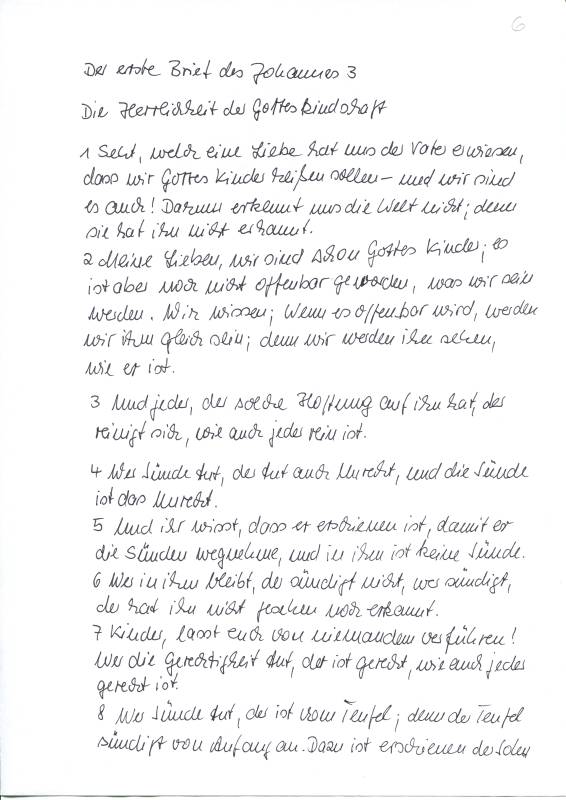 6
Der erste Brief des Johannes 3
Die Herrlichkeit der Gotteskindschaft
1 Seht, welch eine Liebe hat uns der Vater erwiesen,
dass wir Gottes Kinder heißen sollen – und wir sind
es auch! Darum erkennt uns die Welt nicht; denn
sie hat ihn nicht erkannt.
2 Meine Lieben, wir sind schon Gottes Kinder; es
ist aber noch nicht offenbar geworden, was wir sein
werden. Wir wissen; Wenn es offenbar wird, werden
wir ihm gleich sein; denn wir werden ihn sehen,
wie er ist.
3 Und jeder, der solche Hoffnung auf ihn hat, der
reinigt sich, wie auch jeder rein ist.
4 Wer Sünde tut, der tut auch Unrecht, und die Sünde
ist das Unrecht.
5 Und ihr wisst, dass er erschienen ist, damit er
die Sünden wegnehme, und in ihm ist keine Sünde.
6 Wer in ihm bleibt, der sündigt nicht, wer sündigt,
der hat ihn nicht gesehen noch erkannt.
7 Kinder, lasst euch von niemandem verführen!
Wer die Gerechtigkeit tut, der ist gerecht, wie auch jeder
gerecht ist.
8 Wer Sünde tut, der ist vom Teufel; denn der Teufel
sündigt von Anfang an. Dazu ist erschienen der Sohn